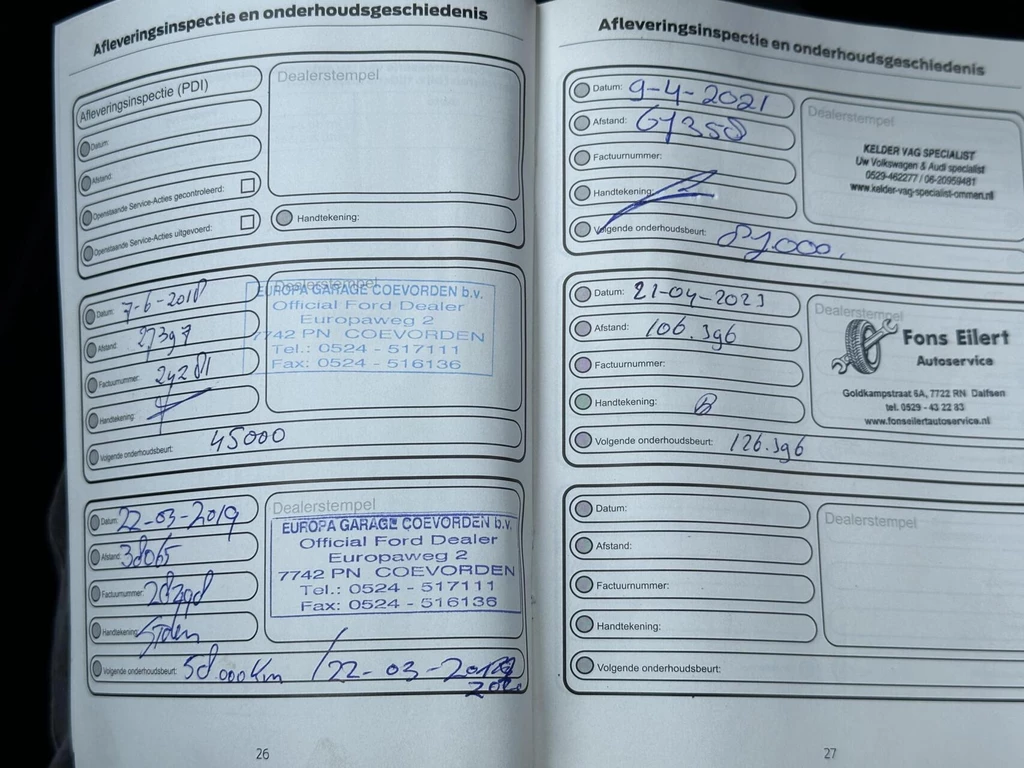 Afleveringsinspectie en onderhoudsgeschiedenis
Afleveringsinspectie (PDI)
Datum:
Afstand:
Openstaande Service-Acties gecontroleerd:
Openstaande Service-Acties uitgevoerd:
Dealerstempel
Handtekening:
Datum: 7-6-2018
Afstand: 27397
Factuurnummer: 24281
Handtekening:
Volgende onderhoudsbeurt: 45000
Dealerstempel
EUROPA GARAGE COEVORDEN b.v.
Official Ford Dealer
Europaweg 2
7742 PN COEVORDEN
Tel.: 0524 - 517111
Fax: 0524 - 516136
Datum: 22-03-2019
Afstand: 38065
Factuurnummer:
Handtekening:
Volgende onderhoudsbeurt: 58.000km / 22-03-
Dealerstempel
EUROPA GARAGE COEVORDEN b.v.
Official Ford Dealer
Europaweg 2
7742 PN COEVORDEN
Tel.: 0524 - 517111
Fax: 0524 - 516136
26
Afleveringsinspectie en onderhoudsgeschiedenis
Datum: 9-4-2021
Afstand: 61358
Factuurnummer:
Handtekening:
Volgende onderhoudsbeurt: 81000.
Dealerstempel
KELDER VAG SPECIALIST
Uw Volkswagen & Audi specialist
0529-462277 / 06-20959481
www.kelder-vag-specialist-ommen.nl
Datum: 21-04-2023
Afstand: 106.396
Factuurnummer:
Handtekening:
Volgende onderhoudsbeurt: 126.396
Dealerstempel
Fons Eilert
Autoservice
Goldkampstraat 6A, 7722 RN Dalfsen
tel. 0529 - 43 22 83
www.fonseilertautoservice.nl
Datum:
Afstand:
Factuurnummer:
Handtekening:
Volgende onderhoudsbeurt:
Dealerstempel
27